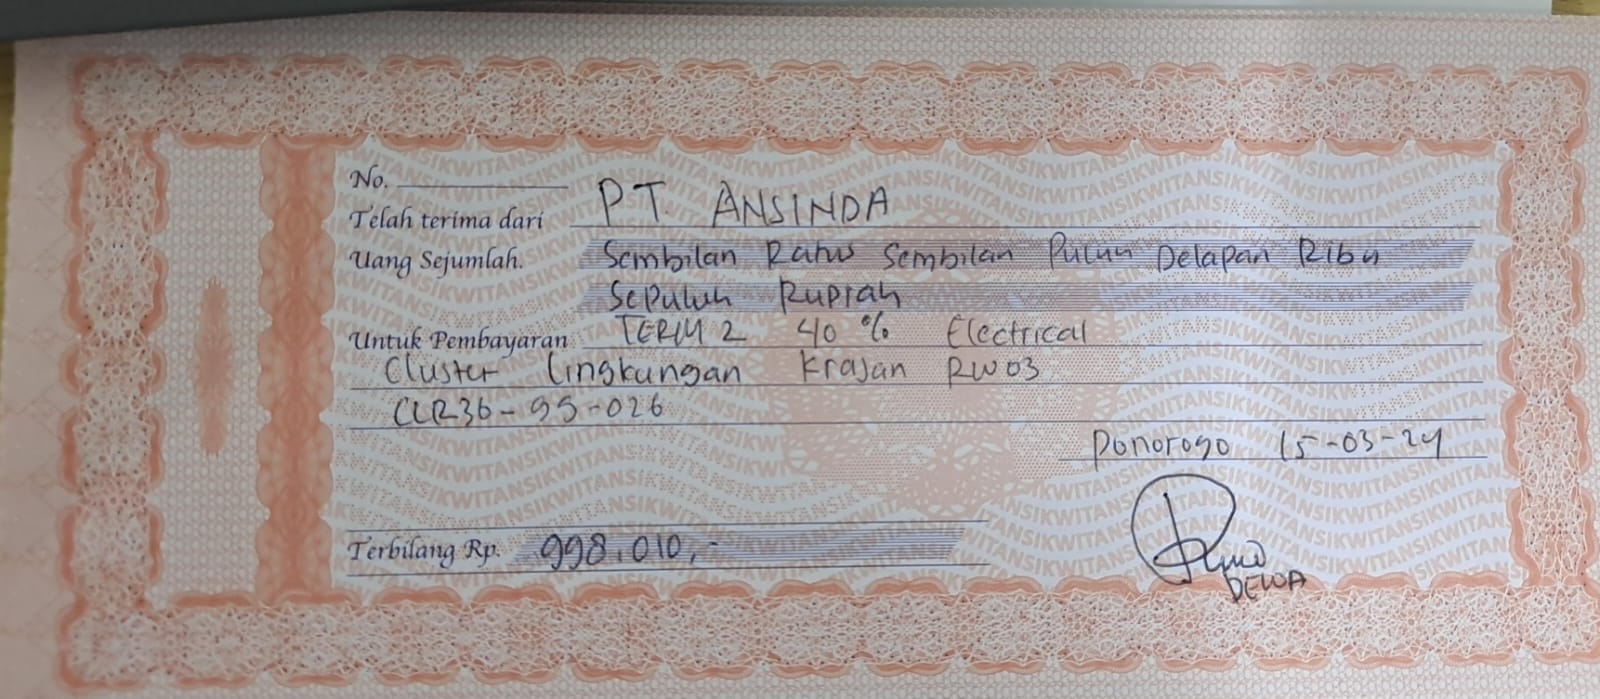 No.
Telah terima dari PT. ANSINDA
Uang Sejumlah. Sembilan Ratus Sembilan Puluh Delapan Ribu
Sepuluh Rupiah
Untuk Pembayaran TERM 2 40 % Electrical
Cluster Lingkungan Krajan RW03
CLR36-95-026
Ponorogo 15-03-24
Terbilang Rp. 998.010,-
DEWA